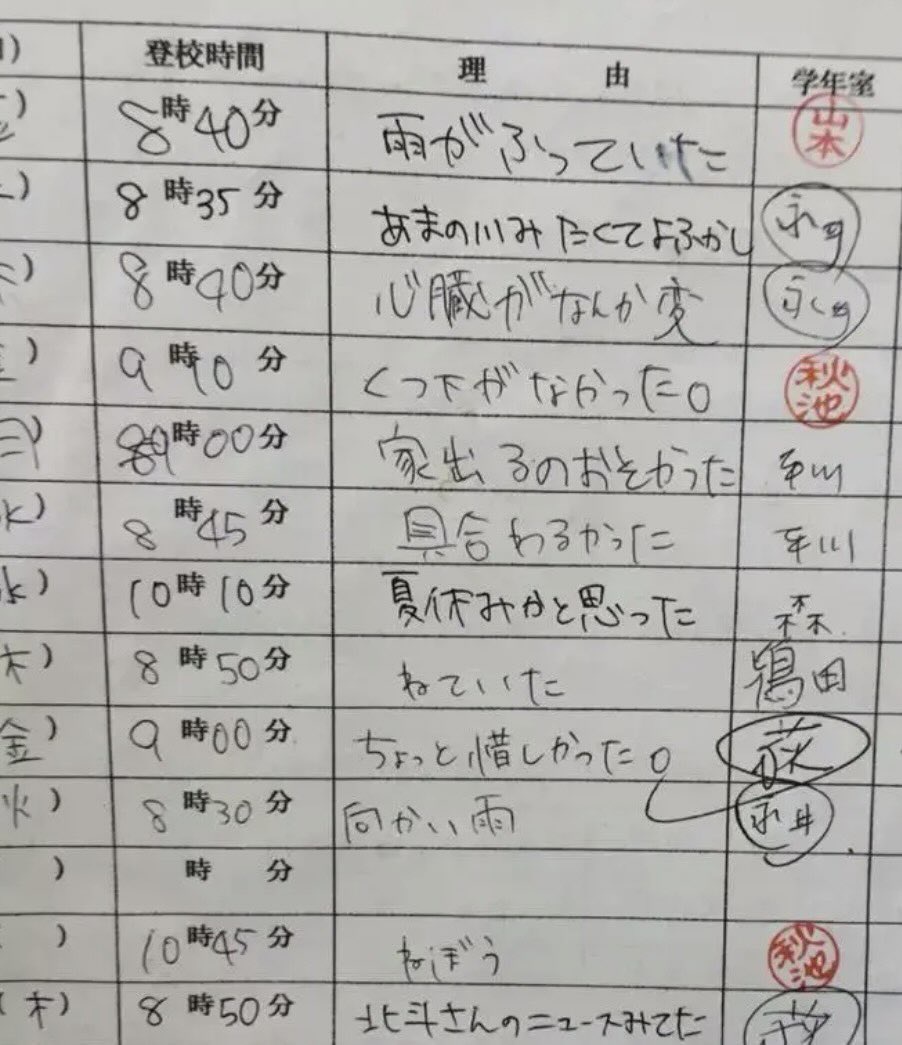 登校時間 理由 学年室
8時40分 雨がふっていた 山本
8時35分 あまの川みたくてよふかし 永井
8時40分 心臓がなんか変 永井
9時10分 くつ下がなかった。 秋池
9時00分 家出るのおそかった 平川
水) 8時45分 具合わるかった 平川
水) 10時10分 夏休みかと思った 森
木) 8時50分 ねていた 鴇田
金) 9時00分 ちょっと惜しかった。
火) 8時30分 向かい雨 永井
) 時 分
) 10時45分 ねぼう 秋池
(木) 8時50分 北斗さんのニュースみてた